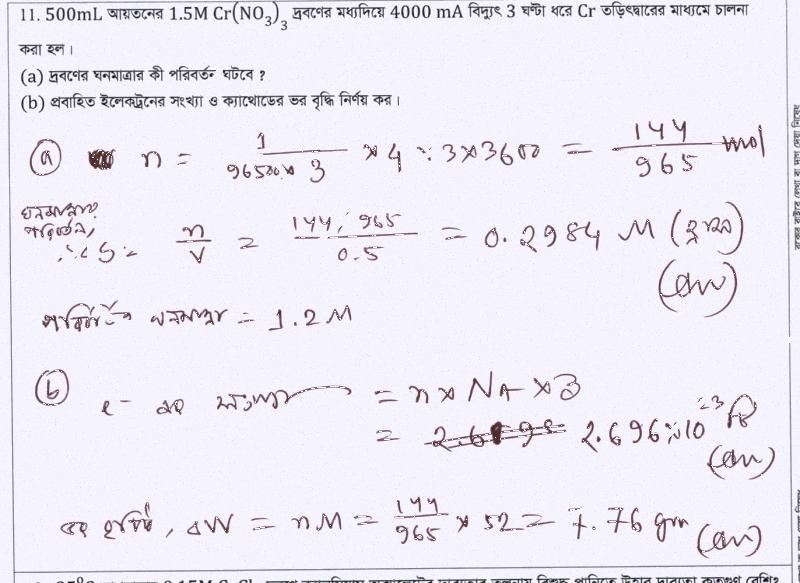 11. 500mL আয়তনের 1.5M Cr(NO₃)₃ দ্রবণের মধ্যদিয়ে 4000 mA বিদ্যুৎ 3 ঘণ্টা ধরে Cr তড়িৎদ্বারের মাধ্যমে চালনা
করা হল।
(a) দ্রবণের ঘনমাত্রার কী পরিবর্তন ঘটবে ?
(b) প্রবাহিত ইলেকট্রনের সংখ্যা ও ক্যাথোডের ভর বৃদ্ধি নির্ণয় কর।
(a) n = 1/(96500 × 3) × 4 × 3×3600 = 144/965 mol
ঘনমাত্রার
পরিবর্তন,
n/V = (144/965)/0.5 = 0.2984 M (হ্রাস)
(Ans)
পরিবর্তিত ঘনমাত্রা = 1.2M
(b) e⁻ এর সংখ্যা = n × NA × 3
= 2.696×10²³ টি
(Ans)
ভর বৃদ্ধি, ΔW = nM = 144/965 × 52 = 7.76 gm (Ans)